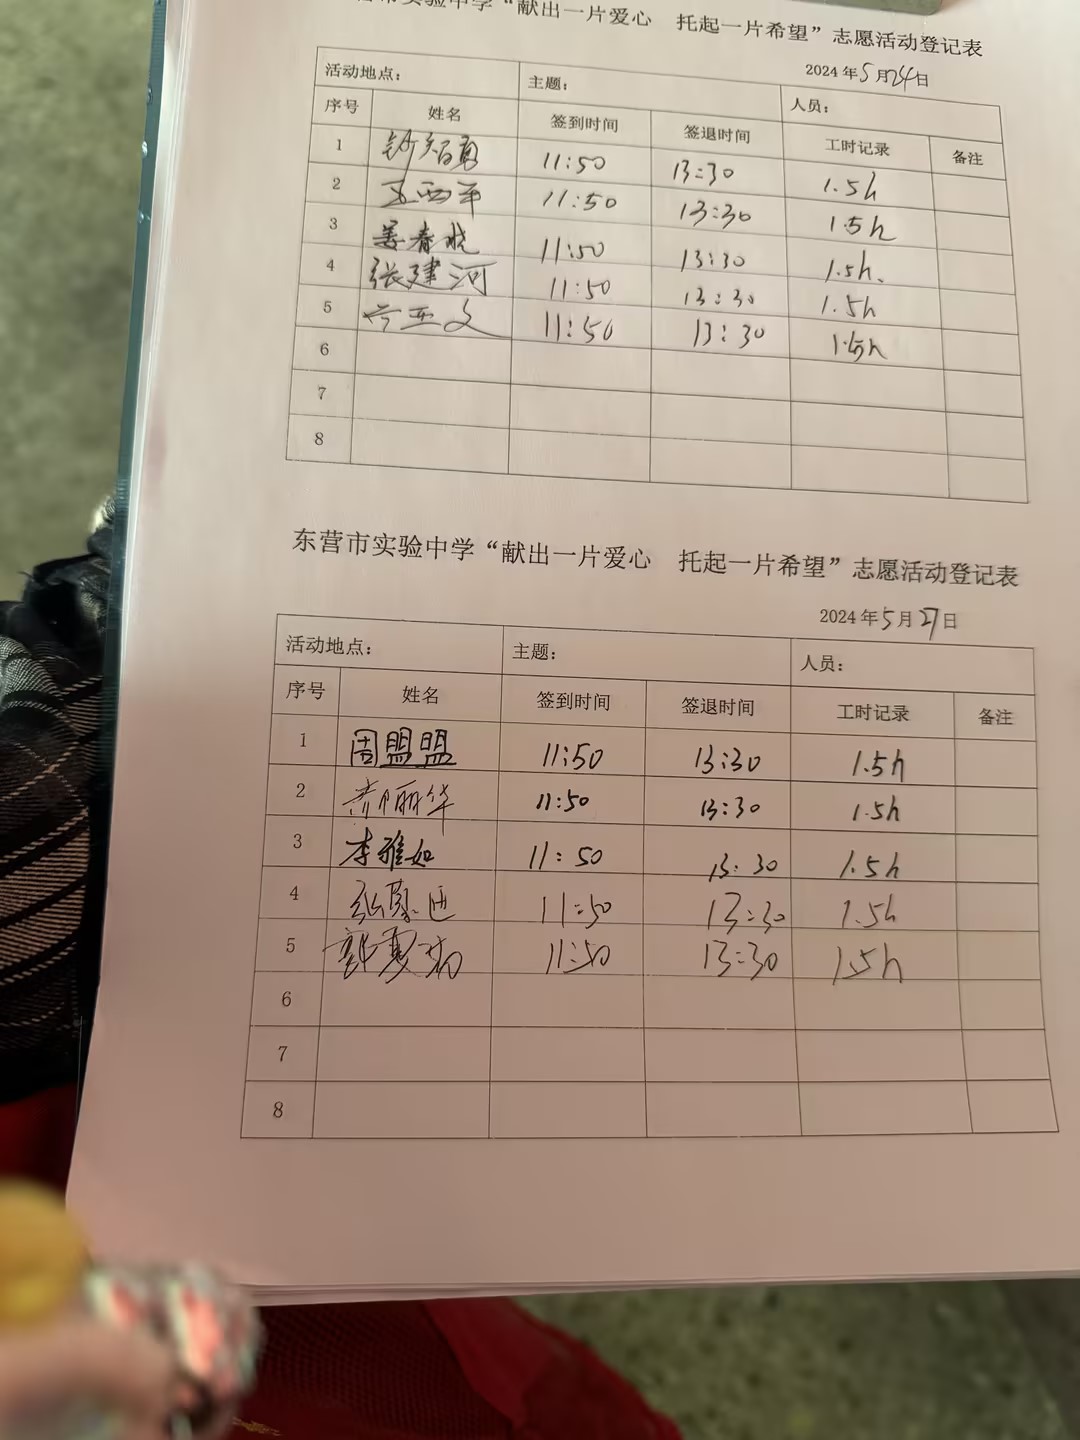 东营市实验中学“献出一片爱心 托起一片希望”志愿活动登记表
2024年5月24日
活动地点： 主题： 人员：
序号 姓名 签到时间 签退时间 工时记录 备注
1 11:50 13:30 1.5h
2 王西平 11:50 13:30 1.5h
3 姜春晓 11:50 13:30 1.5h.
4 张建河 11:50 13:30 1.5h
5 11:50 13:30 1.5h
6
7
8
东营市实验中学“献出一片爱心 托起一片希望”志愿活动登记表
2024年5月27日
活动地点： 主题： 人员：
序号 姓名 签到时间 签退时间 工时记录 备注
1 周盟盟 11:50 13:30 1.5h
2 丽华 11:50 13:30 1.5h
3 李雅如 11:50 13:30 1.5h
4 11:50 13:30 1.5h
5 11:50 13:30 1.5h
6
7
8